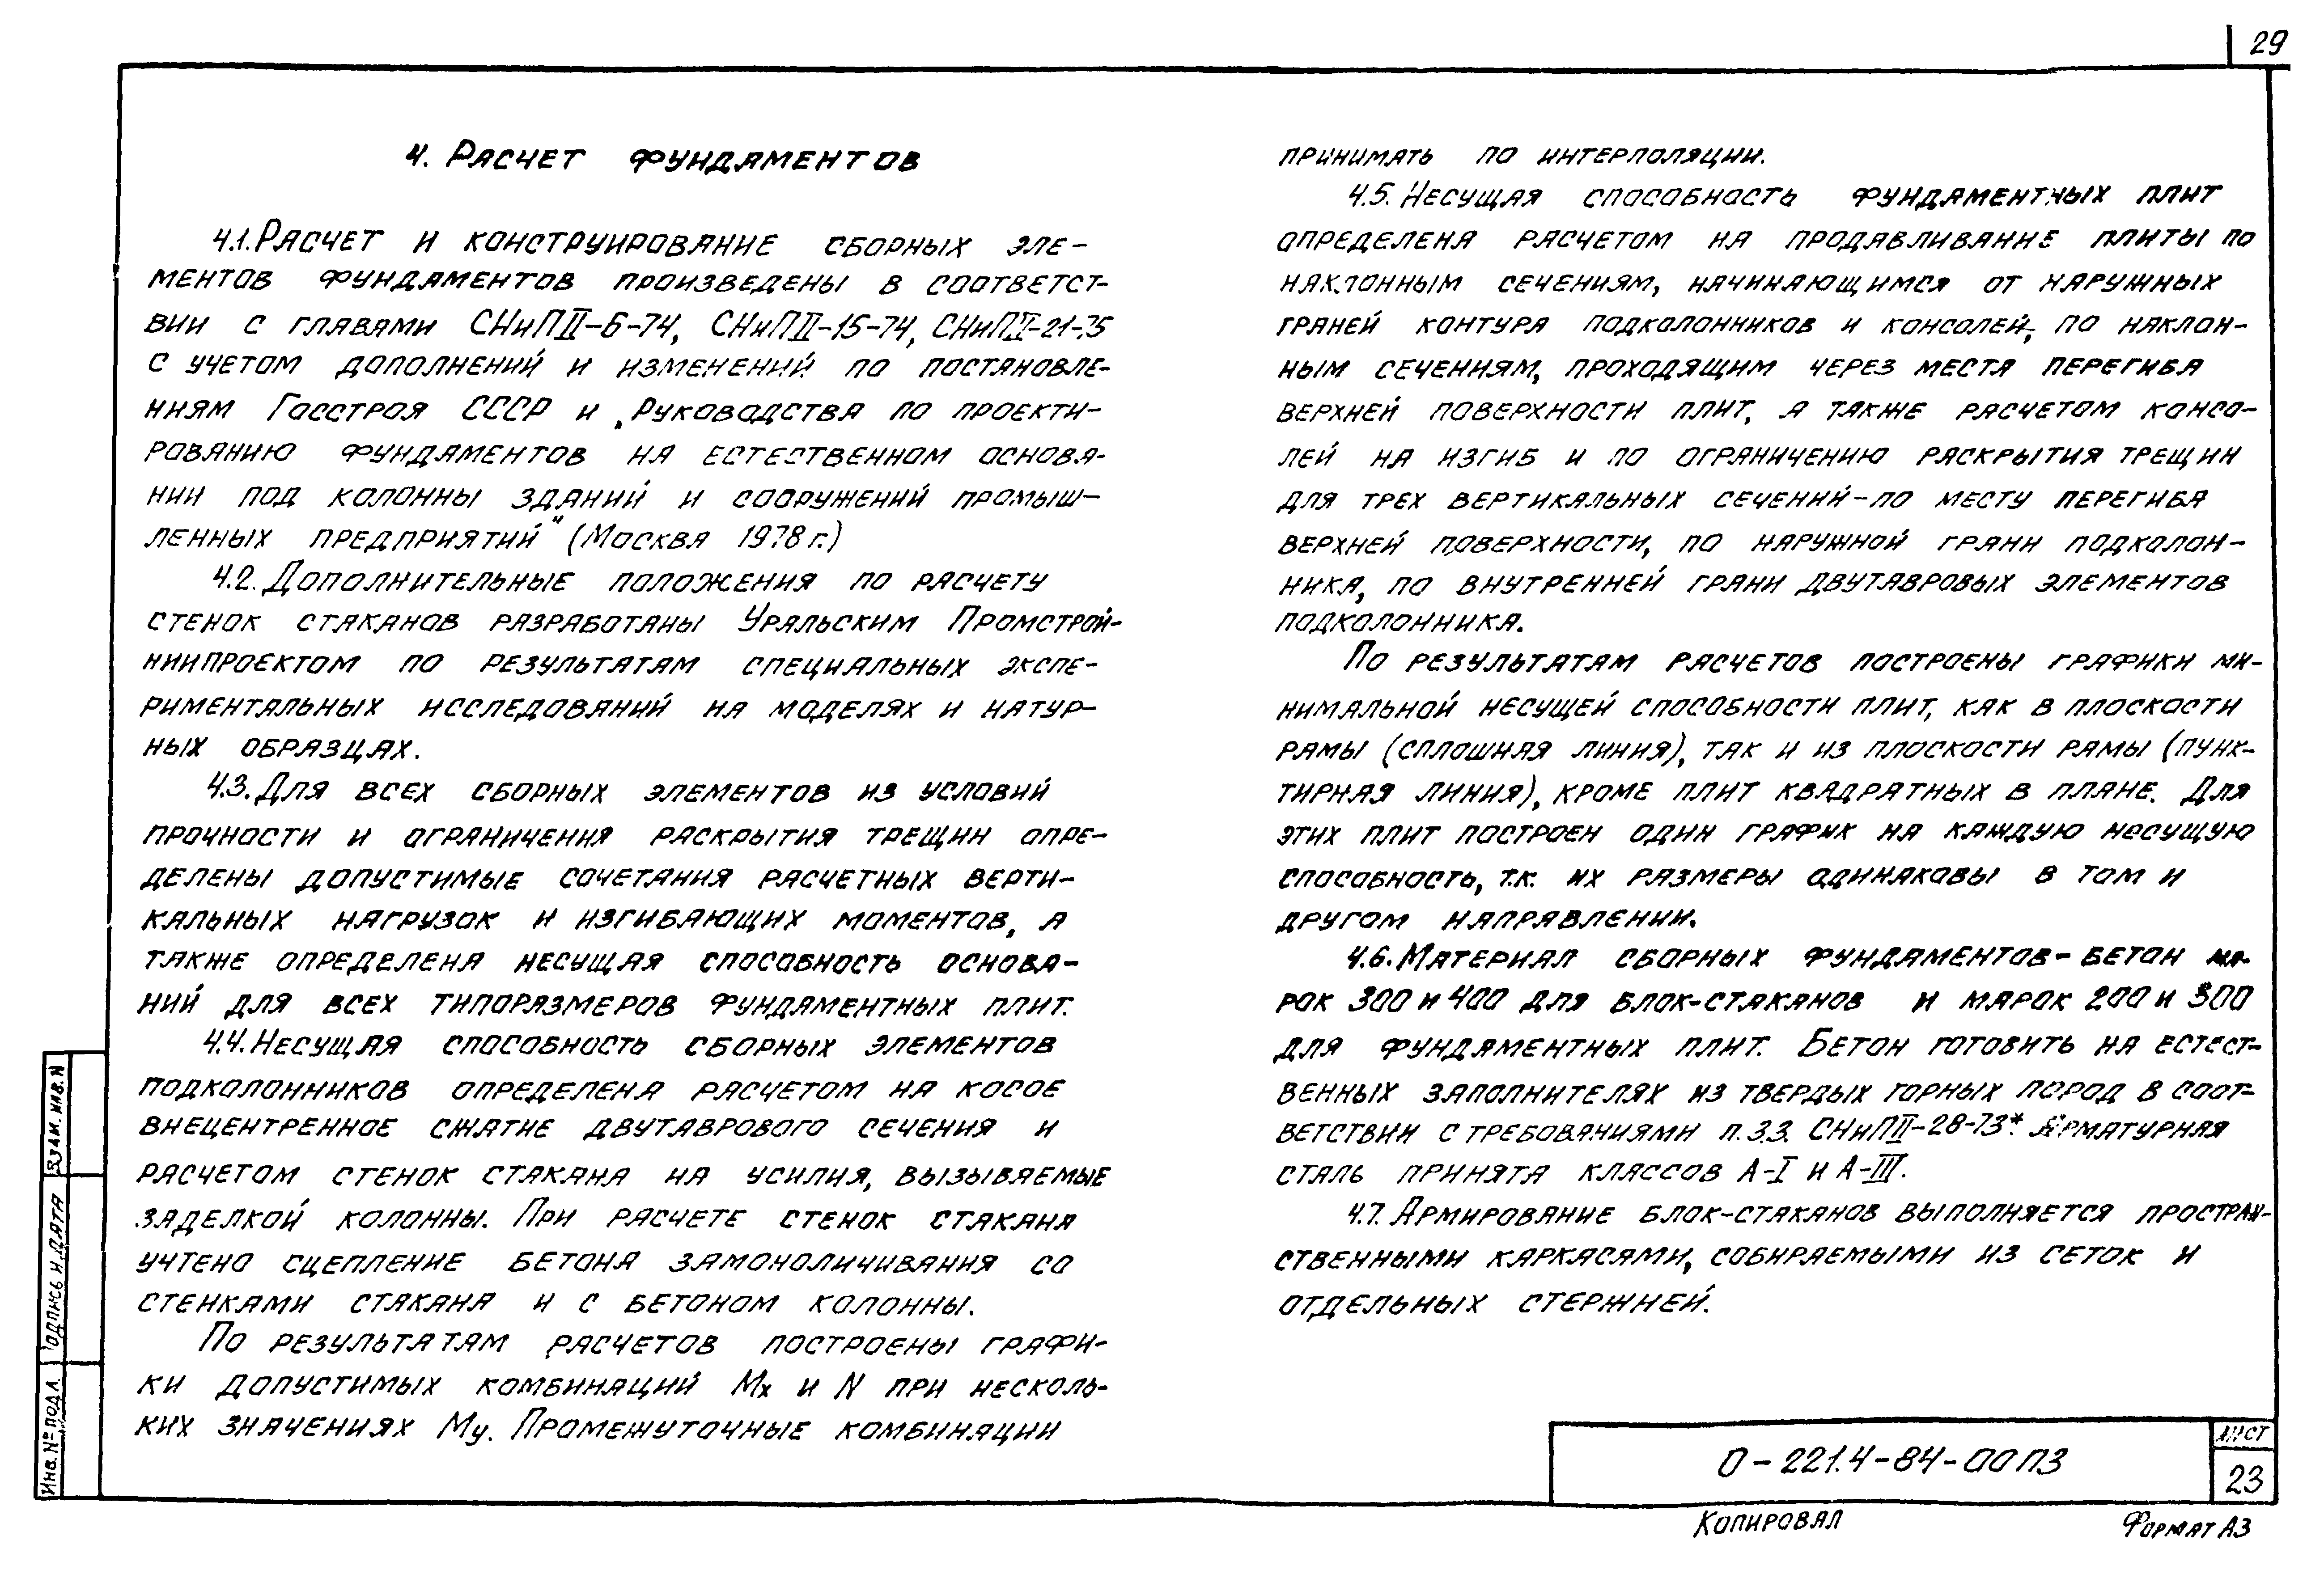 29
4. Расчет фундаментов
4.1. Расчет и конструирование сборных эле-
ментов фундаментов произведены в соответст-
вии с главами СНиПII-6-74, СНиПII-15-74, СНиПII-21-75
с учетом дополнений и изменений по постановле-
ниям Госстроя СССР и „Руководства по проекти-
рованию фундаментов на естественном основа-
нии под колонны зданий и сооружений промыш-
ленных предприятий" (Москва 1978 г.)
4.2. Дополнительные положения по расчету
стенок стаканов разработаны Уральским Промстрой-
ниипроектом по результатам специальных экспе-
риментальных исследований на моделях и натур-
ных образцах.
4.3. Для всех сборных элементов из условий
прочности и ограничения раскрытия трещин опре-
делены допустимые сочетания расчетных верти-
кальных нагрузок и изгибающих моментов, а
также определена несущая способность основа-
ний для всех типоразмеров фундаментных плит.
4.4. Несущая способность сборных элементов
подколонников определена расчетом на косое
внецентренное сжатие двутаврового сечения и
расчетом стенок стакана на усилия, вызываемые
заделкой колонны. При расчете стенок стакана
учтено сцепление бетона замоноличивания со
стенками стакана и с бетоном колонны.
По результатам расчетов построены графи-
ки допустимых комбинаций Мх и N при несколь-
ких значениях Му. Промежуточные комбинации
принимать по интерполяции.
4.5. Несущая способность фундаментных плит
определена расчетом на продавливание плиты по
наклонным сечениям, начинающимся от наружных
граней контура подколонников и консолей, по наклон-
ным сечениям, проходящим через места перегиба
верхней поверхности плит, а также расчетом консо-
лей на изгиб и по ограничению раскрытия трещин
для трех вертикальных сечений-по месту перегиба
верхней поверхности, по наружной грани подколон-
ника, по внутренней грани двутавровых элементов
подколонника.
По результатам расчетов построены графики ми-
нимальной несущей способности плит, как в плоскости
рамы (сплошная линия), так и из плоскости рамы (пунк-
тирная линия), кроме плит квадратных в плане. Для
этих плит построен один график на каждую несущую
способность, т.к. их размеры одинаковы в том и
другом направлении.
4.6. Материал сборных фундаментов-бетон ма-
рок 300 и 400 для блок-стаканов и марок 200 и 300
для фундаментных плит. Бетон готовить на естест-
венных заполнителях из твердых горных пород в соот-
ветствии с требованиями п.3.3. СНиПII-28-73*. Арматурная
сталь принята классов А-I и А-III.
4.7. Армирование блок-стаканов выполняется простран-
ственными каркасами, собираемыми из сеток и
отдельных стержней.
Взам. инв. N
Подпись и дата
Инв. № подл.
0-221.4-84-00ПЗ
Лист
23
Копировал
Формат А3